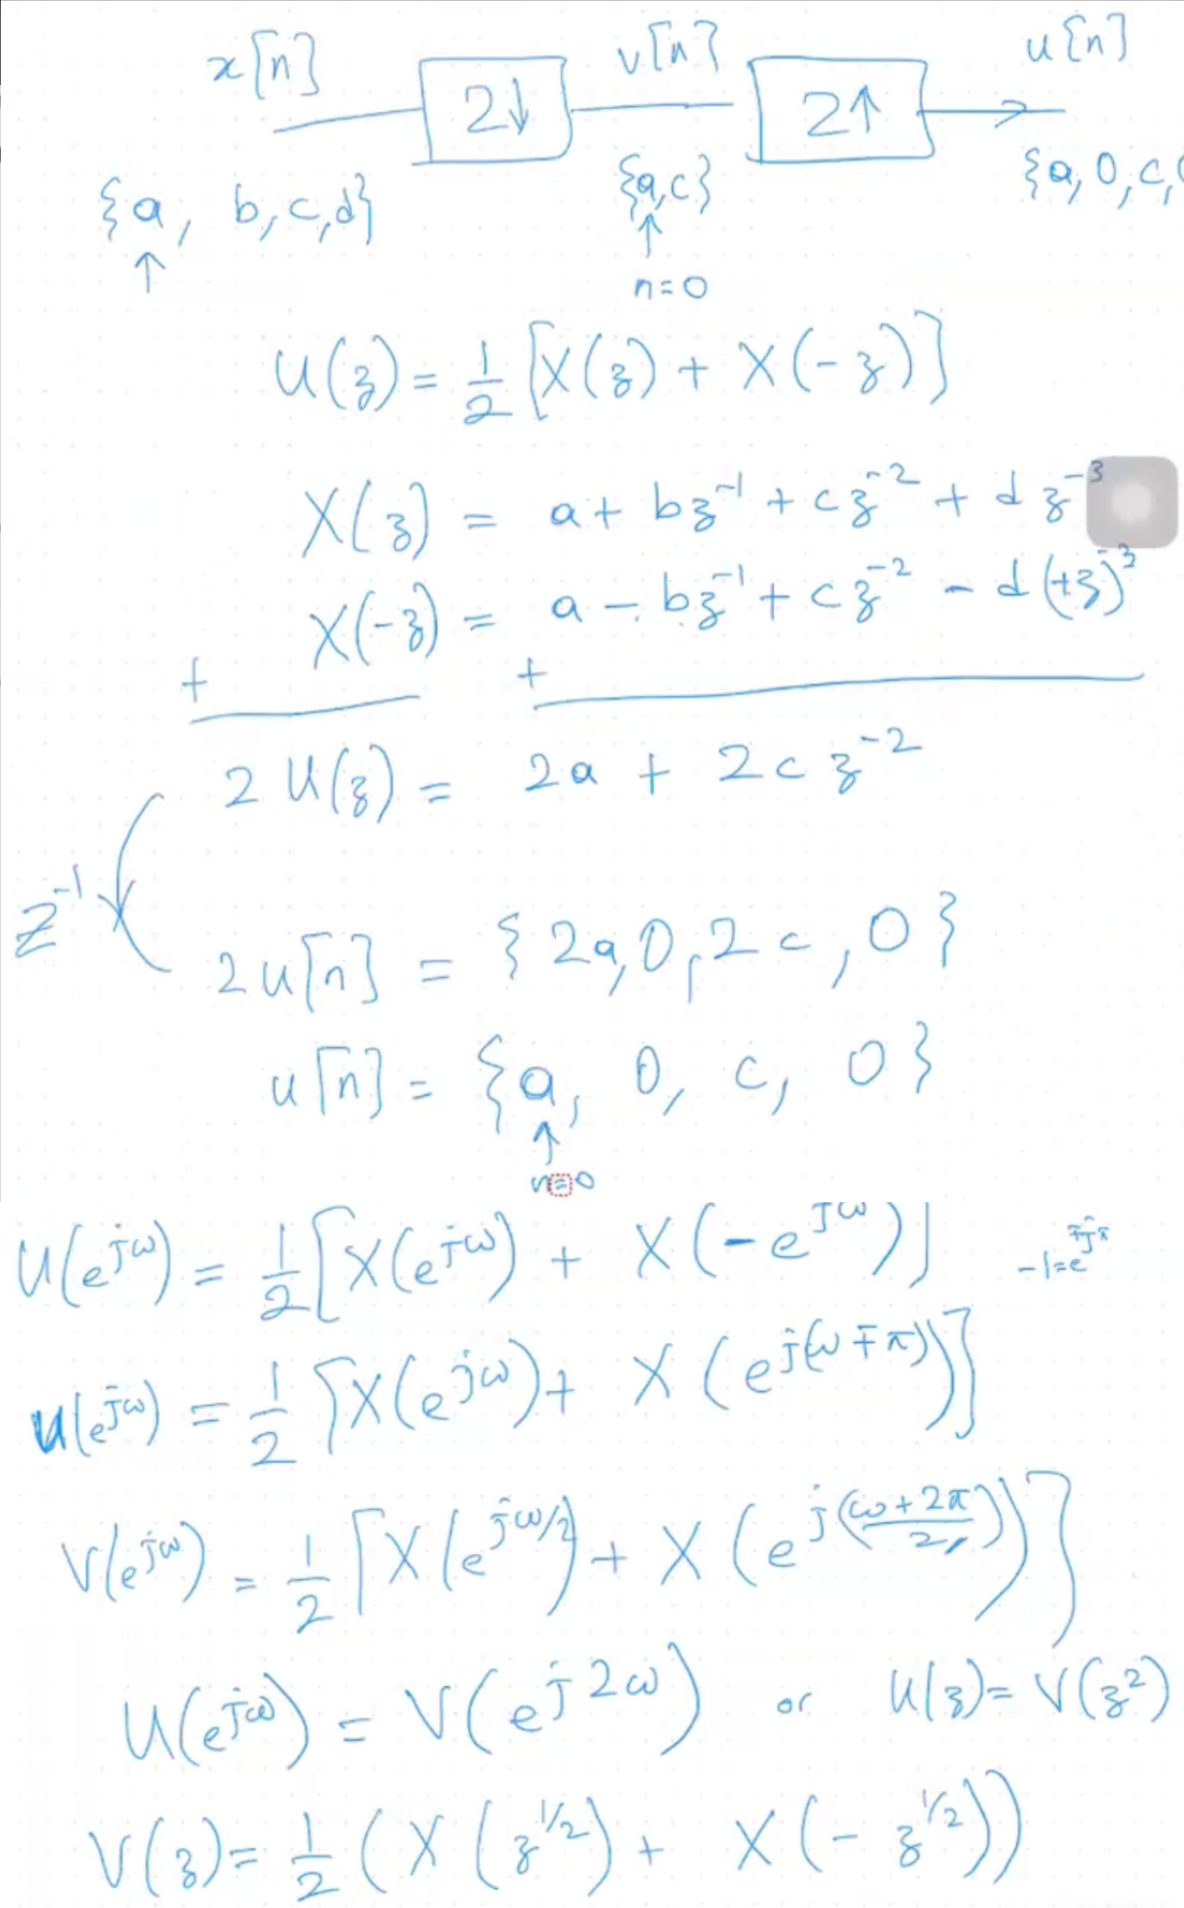 x[n] 2↓ v[n] 2↑ u[n]
{a, b, c, d} {a,c} {a, 0, c,
↑ ↑
n=0
U(z) = 1/2 [X(z) + X(-z)]
X(z) = a + bz^-1 + cz^-2 + dz^-3
X(-z) = a - bz^-1 + cz^-2 - d(+z)^-3
+ +
2U(z) = 2a + 2cz^-2
Z^-1
2u[n] = {2a, 0, 2c, 0}
u[n] = {a, 0, c, 0}
↑
n=0
U(e^jω) = 1/2 [X(e^jω) + X(-e^jω)] -1=e^∓jπ
U(e^jω) = 1/2 [X(e^jω) + X(e^j(ω∓π))]
V(e^jω) = 1/2 [X(e^jω/2) + X(e^j(ω+2π/2))]
U(e^jω) = V(e^j2ω) or U(z) = V(z^2)
V(z) = 1/2 (X(z^1/2) + X(-z^1/2))